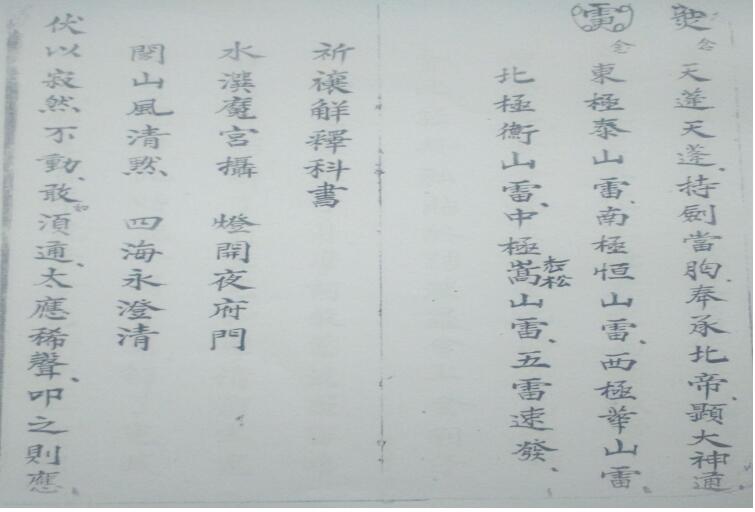 念 天蓬天蓬、持劍當胸、奉承北帝、顕大神通、
雷 念 東極泰山雷、南極恒山雷、西極華山雷
北極衡山雷、中極嵩山雷、五雷速發、
志松
祈禳解釋科書
水潠魔宮攝 燈開夜府門
閣山風清黙 四海永澄清
伏以寂然不動、敢須通、太應稀聲、叩之則應、
如